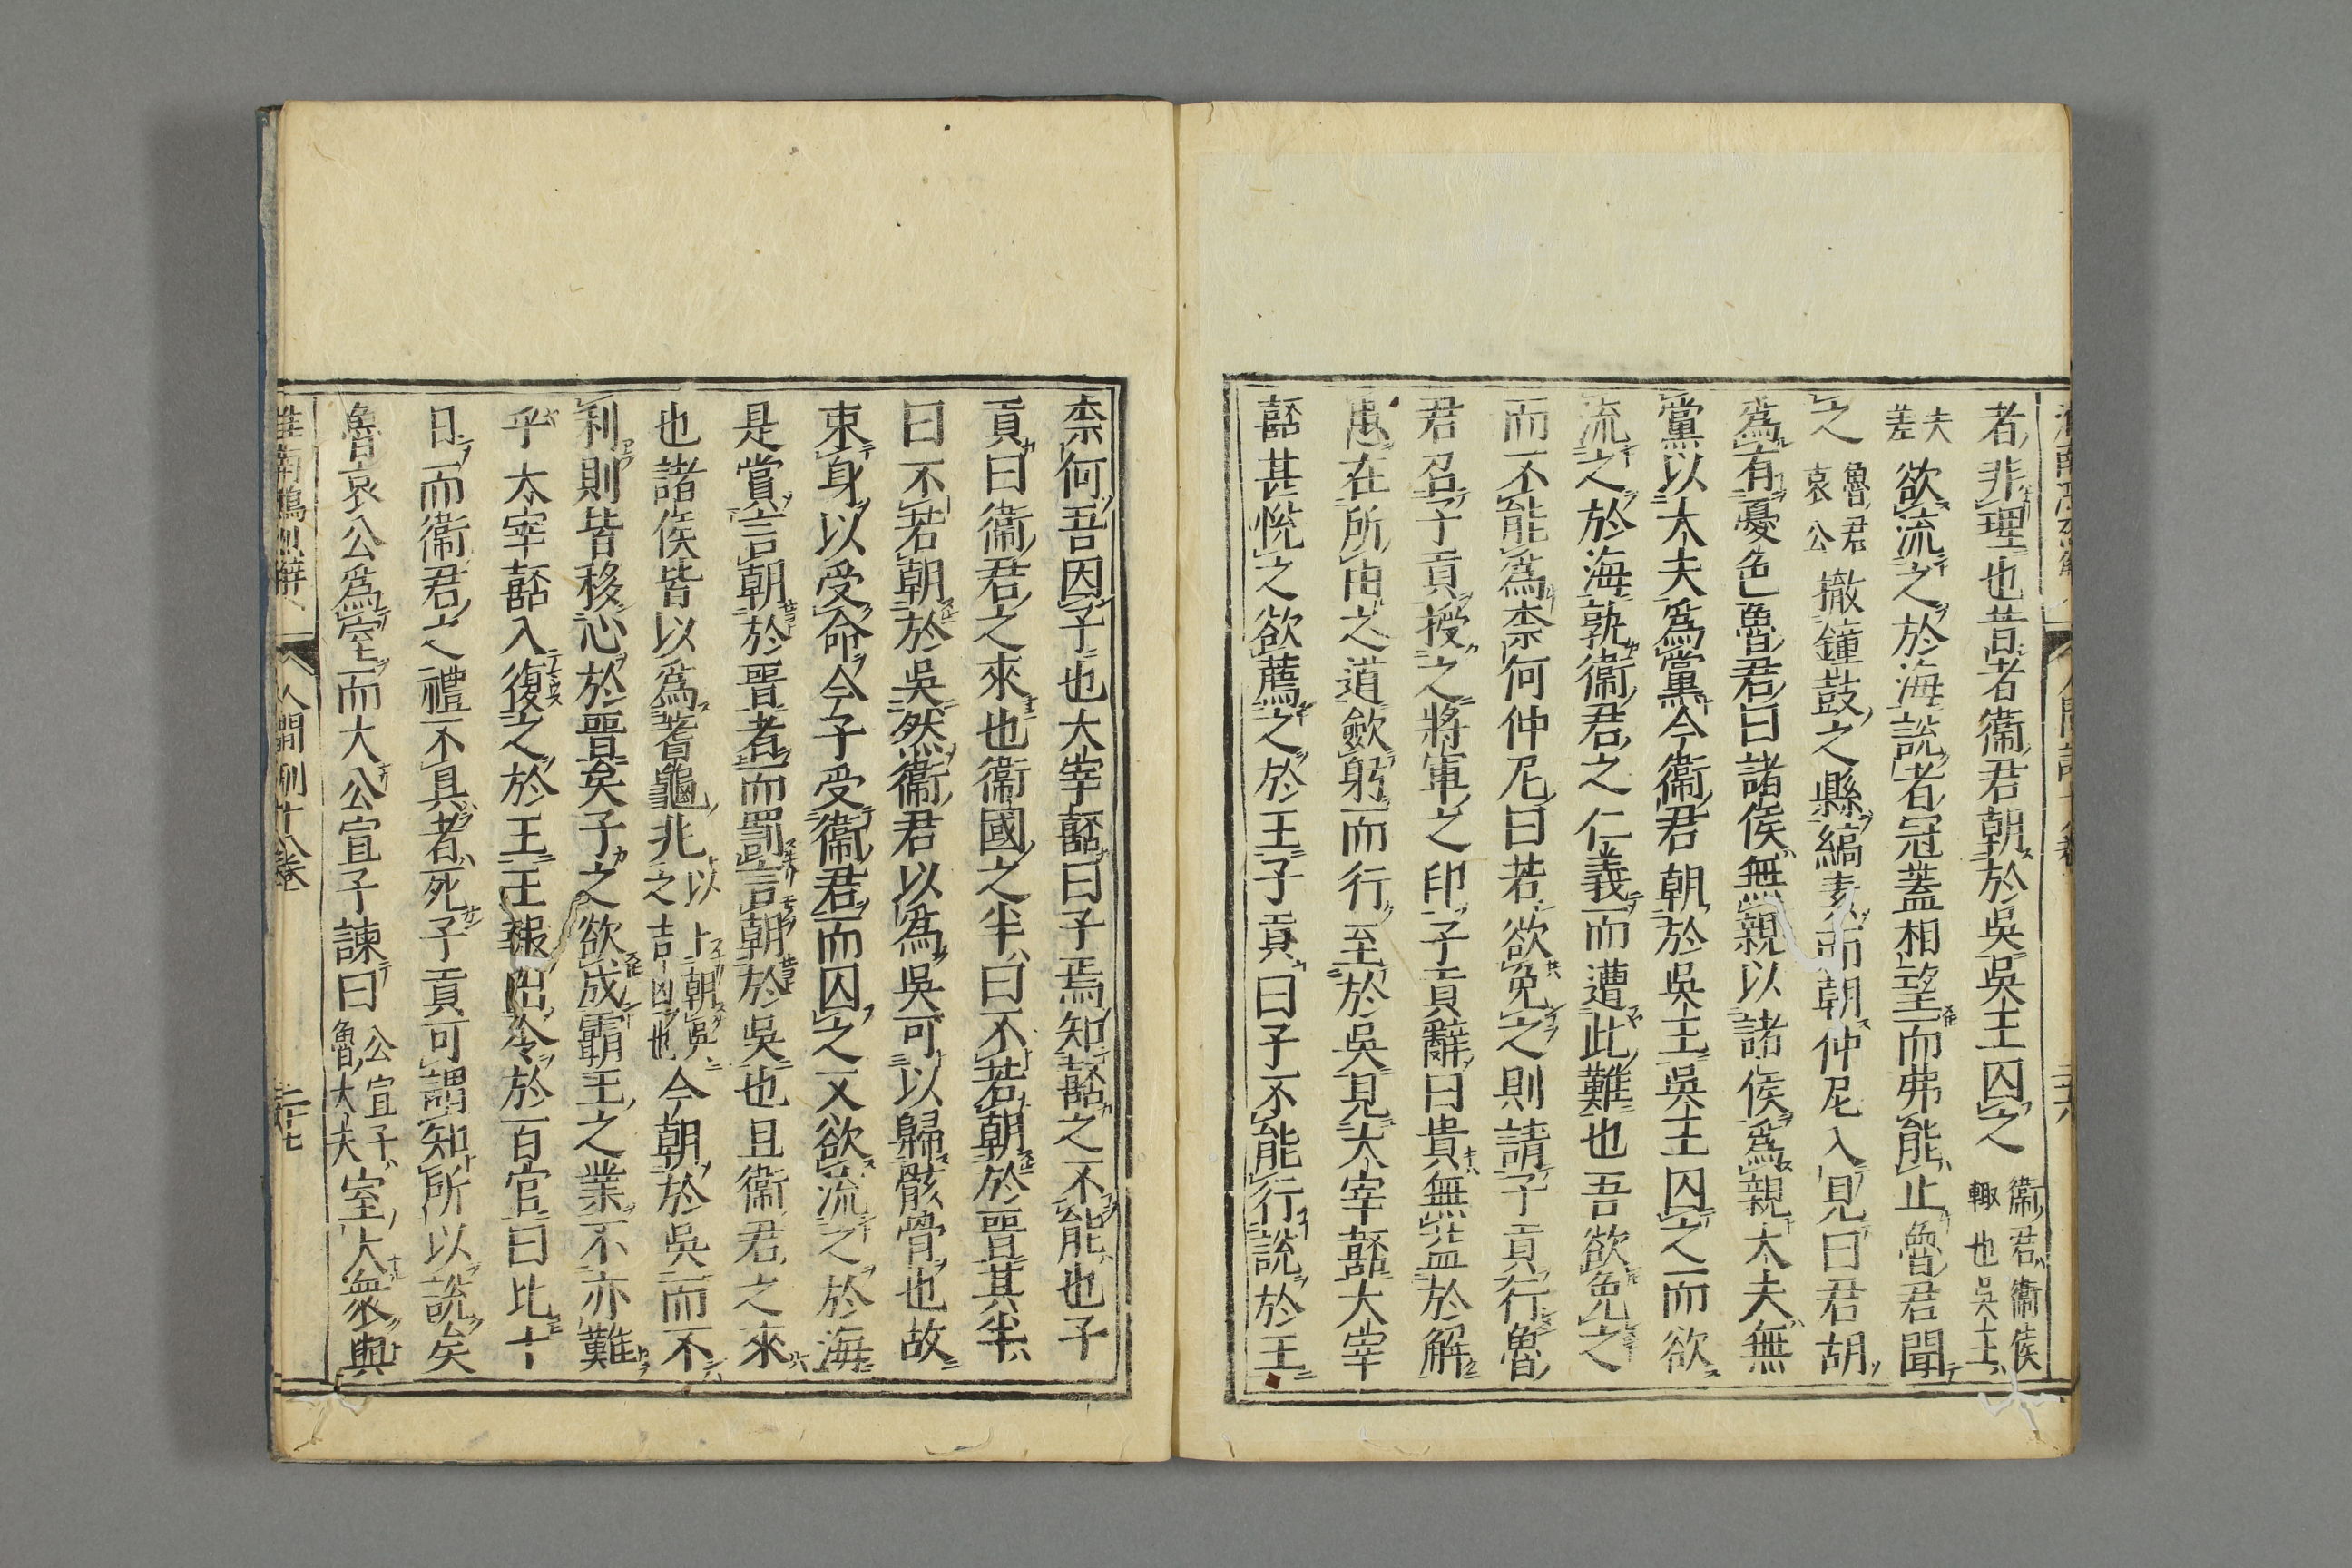 者非理也昔者衞君朝於吳吳王囚之衞君衞侯輙也吳王
夫差欲流之於海說者冠蓋相望而弗能止魯君聞
之魯君哀公撤鐘鼓之縣縞素而朝仲尼入見曰君胡
爲有憂色魯君曰諸侯無親以諸侯爲親大夫無
黨以大夫爲黨今衞君朝於吳王吳王囚之而欲
流之於海孰衞君之仁義而遭此難也吾欲免之
而不能爲柰何仲尼曰若欲免之則請子貢行魯
君召子貢授之將軍之印子貢辭曰貴無益於解
患在所由之道斂躬而行至於吳見太宰嚭大宰
嚭甚悅之欲薦之於王子貢曰子不能行說於王
柰何吾因子也大宰嚭曰子焉知嚭之不能也子
貢曰衞君之來也衞國之半曰不若朝於晉其半
曰不若朝於吳然衞君以爲吳可以歸骸骨也故
束身以受命今子受衞君而囚之又欲流之於海
是賞言朝於晉者而罰言朝於吳也且衞君之來
也諸侯皆以爲蓍龜兆以卜朝吳之吉凶也今朝於吳而不
利則皆移心於晉矣子之欲成霸王之業不亦難
乎太宰嚭入復之於王王報出令於百官曰比十
日而衞君之禮不具者死子貢可謂知所以說矣
魯哀公爲室而大公宣子諫曰公宣子魯大夫室大衆與
人間訓十八卷
二十七